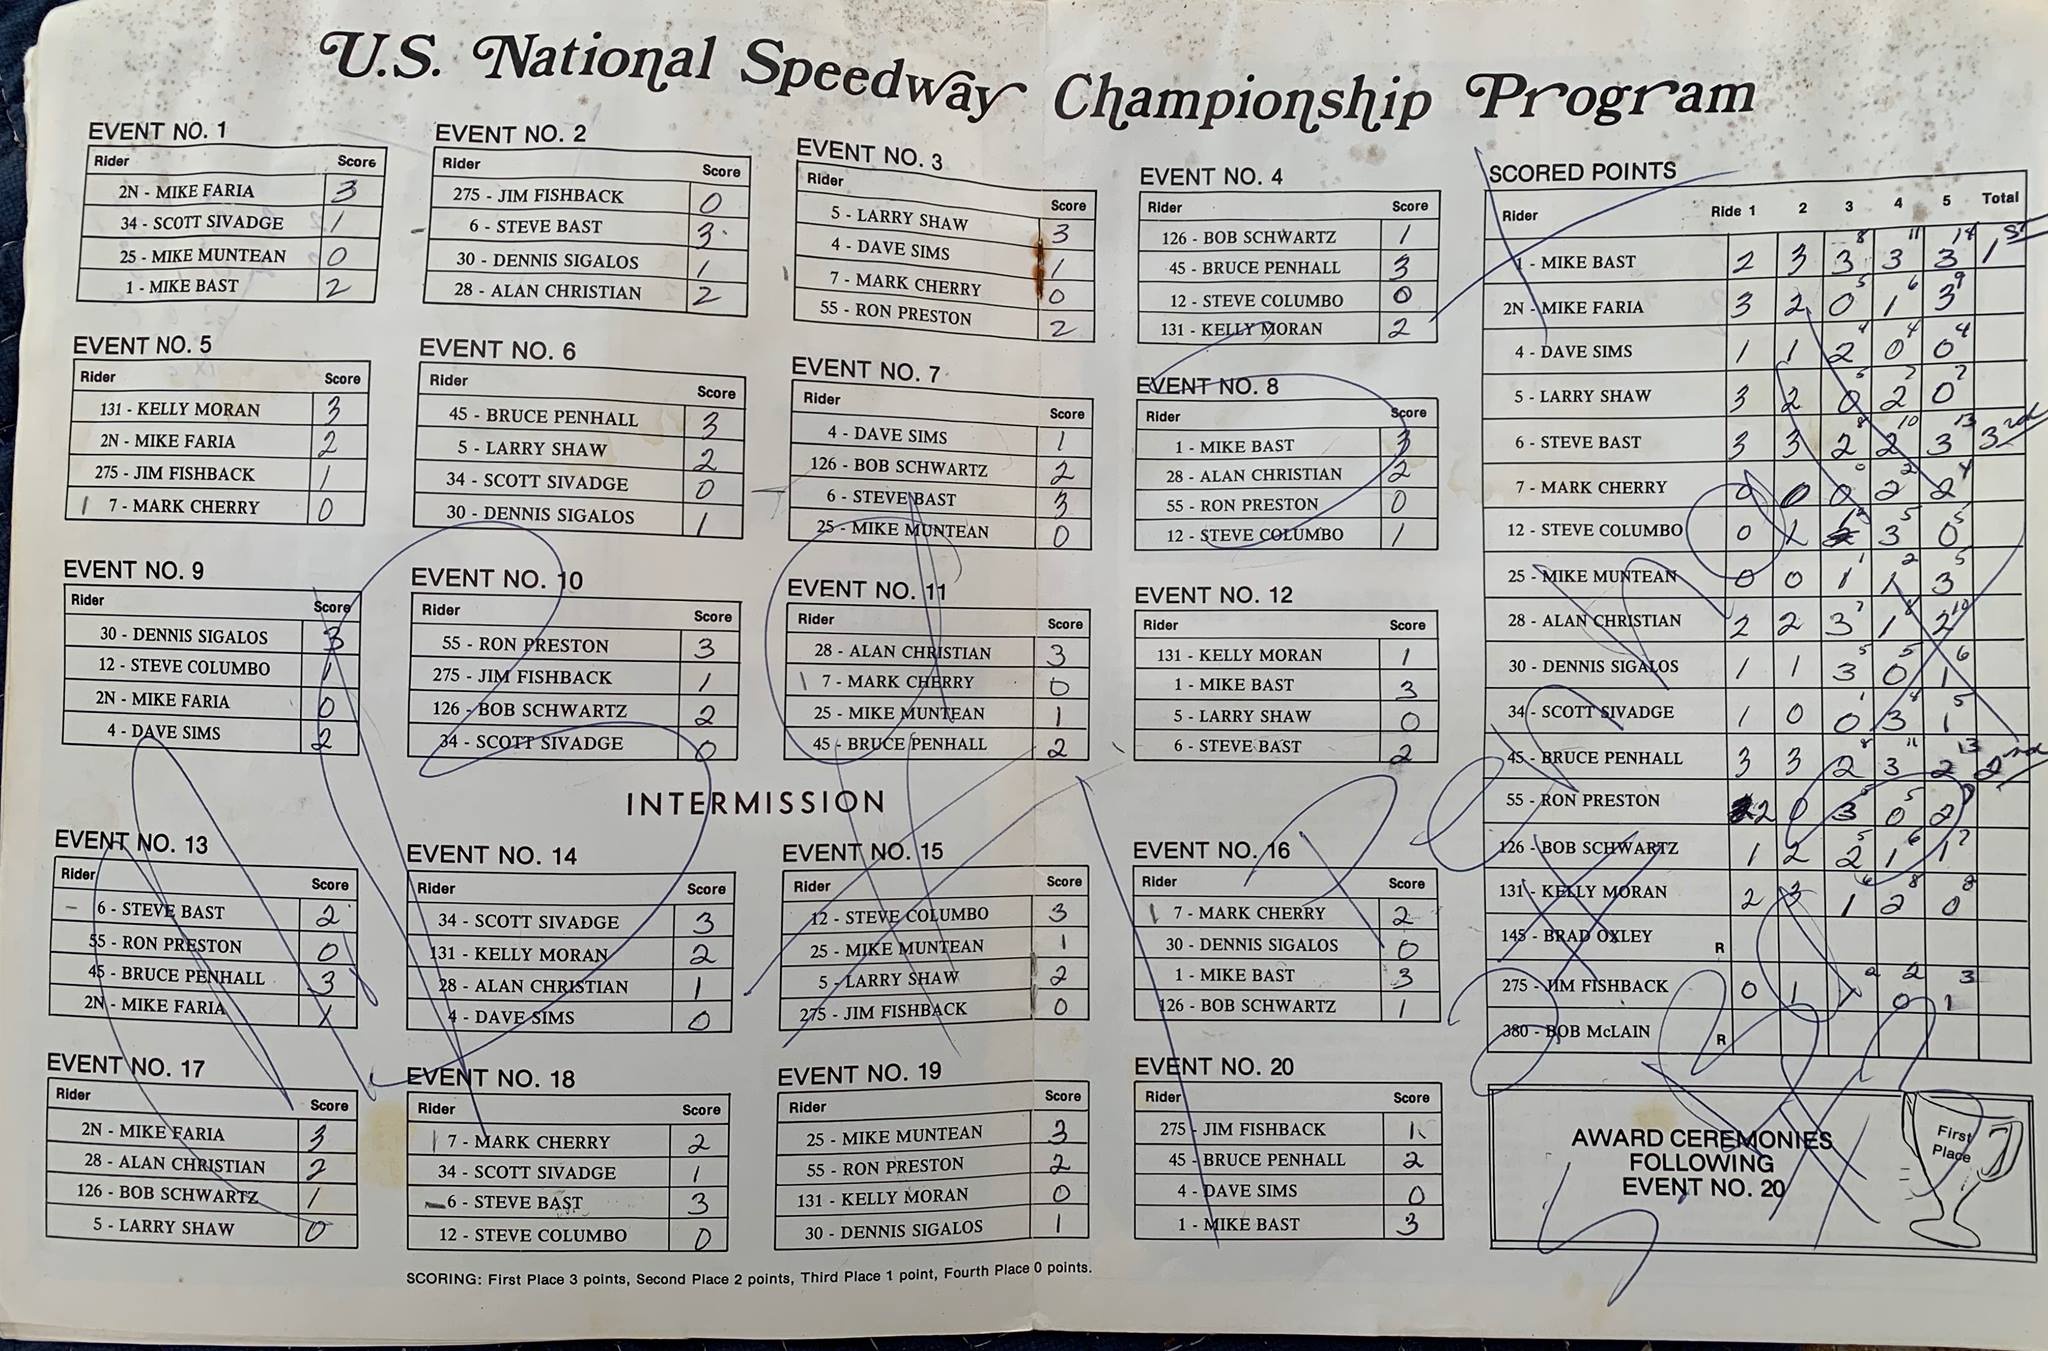 U.S. National Speedway Championship Program
EVENT NO. 1
Rider Score
2N - MIKE FARIA 3
34 - SCOTT SIVADGE 1
25 - MIKE MUNTEAN 0
1 - MIKE BAST 2
EVENT NO. 2
Rider Score
275 - JIM FISHBACK 0
6 - STEVE BAST 3
30 - DENNIS SIGALOS 1
28 - ALAN CHRISTIAN 2
EVENT NO. 3
Rider Score
5 - LARRY SHAW 3
4 - DAVE SIMS 1
7 - MARK CHERRY 0
55 - RON PRESTON 2
EVENT NO. 4
Rider Score
126 - BOB SCHWARTZ 1
45 - BRUCE PENHALL 3
12 - STEVE COLUMBO 0
131 - KELLY MORAN 2
EVENT NO. 5
Rider Score
131 - KELLY MORAN 3
2N - MIKE FARIA 2
275 - JIM FISHBACK 1
7 - MARK CHERRY 0
EVENT NO. 6
Rider Score
45 - BRUCE PENHALL 3
5 - LARRY SHAW 2
34 - SCOTT SIVADGE 0
30 - DENNIS SIGALOS 1
EVENT NO. 7
Rider Score
4 - DAVE SIMS 1
126 - BOB SCHWARTZ 2
6 - STEVE BAST 3
25 - MIKE MUNTEAN 0
EVENT NO. 8
Rider Score
1 - MIKE BAST 3
28 - ALAN CHRISTIAN 2
55 - RON PRESTON 0
12 - STEVE COLUMBO 1
EVENT NO. 9
Rider Score
30 - DENNIS SIGALOS 3
12 - STEVE COLUMBO 1
2N - MIKE FARIA 0
4 - DAVE SIMS 2
EVENT NO. 10
Rider Score
55 - RON PRESTON 3
275 - JIM FISHBACK 1
126 - BOB SCHWARTZ 2
34 - SCOTT SIVADGE 0
EVENT NO. 11
Rider Score
28 - ALAN CHRISTIAN 3
7 - MARK CHERRY 0
25 - MIKE MUNTEAN 1
45 - BRUCE PENHALL 2
EVENT NO. 12
Rider Score
131 - KELLY MORAN 1
1 - MIKE BAST 3
5 - LARRY SHAW 0
6 - STEVE BAST 2
INTERMISSION
EVENT NO. 13
Rider Score
6 - STEVE BAST 2
55 - RON PRESTON 0
45 - BRUCE PENHALL 3
2N - MIKE FARIA 1
EVENT NO. 14
Rider Score
34 - SCOTT SIVADGE 3
131 - KELLY MORAN 2
28 - ALAN CHRISTIAN 1
4 - DAVE SIMS 0
EVENT NO. 15
Rider Score
12 - STEVE COLUMBO 3
25 - MIKE MUNTEAN 1
5 - LARRY SHAW 2
275 - JIM FISHBACK 0
EVENT NO. 16
Rider Score
7 - MARK CHERRY 2
30 - DENNIS SIGALOS 0
1 - MIKE BAST 3
126 - BOB SCHWARTZ 1
EVENT NO. 17
Rider Score
2N - MIKE FARIA 3
28 - ALAN CHRISTIAN 2
126 - BOB SCHWARTZ 1
5 - LARRY SHAW 0
EVENT NO. 18
Rider Score
7 - MARK CHERRY 2
34 - SCOTT SIVADGE 1
6 - STEVE BAST 3
12 - STEVE COLUMBO 0
EVENT NO. 19
Rider Score
25 - MIKE MUNTEAN 3
55 - RON PRESTON 2
131 - KELLY MORAN 0
30 - DENNIS SIGALOS 1
EVENT NO. 20
Rider Score
275 - JIM FISHBACK 1
45 - BRUCE PENHALL 2
4 - DAVE SIMS 0
1 - MIKE BAST 3
SCORING: First Place 3 points, Second Place 2 points, Third Place 1 point, Fourth Place 0 points.
SCORED POINTS
Rider Ride 1 2 3 4 5 Total
1 - MIKE BAST 2 3 3 8 3 11 3 14 1st
2N - MIKE FARIA 3 2 0 5 1 6 3 9
4 - DAVE SIMS 1 1 2 4 0 4 0 4
5 - LARRY SHAW 3 2 0 5 2 7 0 7
6 - STEVE BAST 3 3 2 8 2 10 3 13 3rd
7 - MARK CHERRY 0 0 0 0 2 2 2 4
12 - STEVE COLUMBO 0 1 1 2 3 5 0 5
25 - MIKE MUNTEAN 0 0 1 1 1 2 3 5
28 - ALAN CHRISTIAN 2 2 3 7 1 8 2 10
30 - DENNIS SIGALOS 1 1 3 5 0 5 1 6
34 - SCOTT SIVADGE 1 0 0 1 3 4 1 5
45 - BRUCE PENHALL 3 3 2 8 3 11 2 13 2nd
55 - RON PRESTON 2 0 3 5 0 5 2 7
126 - BOB SCHWARTZ 1 2 2 5 1 6 1 7
131 - KELLY MORAN 2 3 1 6 2 8 0 8
145 - BRAD OXLEY R
275 - JIM FISHBACK 0 1 1 2 0 2 1 3
380 - BOB McLAIN R
AWARD CEREMONIES
FOLLOWING
EVENT NO. 20
First
Place